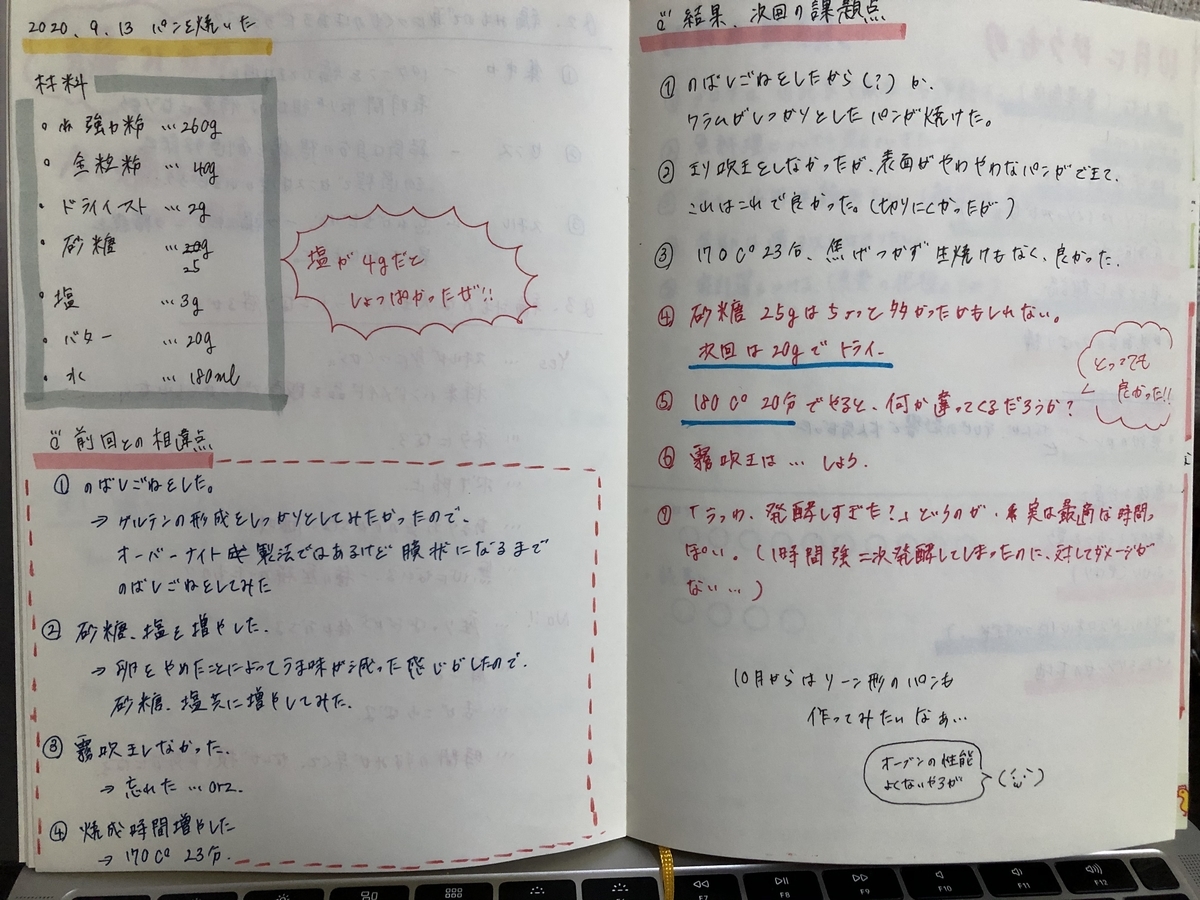 2020. 9. 13 パンを焼いた
材料
・強力粉 … 260g
・全粒粉 … 40g
・ドライイースト … 2g
・砂糖 … 20g
25
・塩 … 3g
・バター … 20g
・水 … 180ml
塩が4gだと
しょっぱかったぜ!!
前回との相違点
① のばしごねをした。
→ グルテンの形成をしっかりとしてみたかったので、
オーバーナイト 製法ではあるけど膜状になるまで
のばしごねをしてみた
② 砂糖、塩を増やした.
→ 卵をやめたことによってうま味が減った感じがしたので、
砂糖、塩共に増やしてみた.
③ 霧吹きしなかった.
→ 忘れた … orz.
④ 焼成時間増やした
→ 170C° 23分.
結果、次回の課題点
① のばしごねをしたから(?)か、
クラムがしっかりとしたパンが焼けた。
② 霧吹きをしなかったが、表面がやわやわなパンができて、
これはこれで良かった。(切りにくかったが)
③ 170C° 23分、焦げつかず生焼けもなく、良かった.
④ 砂糖 25gはちょっと多かったかもしれない。
次回は20gでトライ-
⑤ 180C° 20分でやると、何か違ってくるだろうか?
とっても
良かった!!
⑥ 霧吹きは … しよう.
⑦ 「うっわ、発酵しすぎた?」というのが、実は最適な時間っ
ぽい。(1時間強二次発酵してしまったのに、対してダメージが
ない … )
10月からはリーン形のパンも
作ってみたいなぁ…
オーブンの性能
よくないやろが